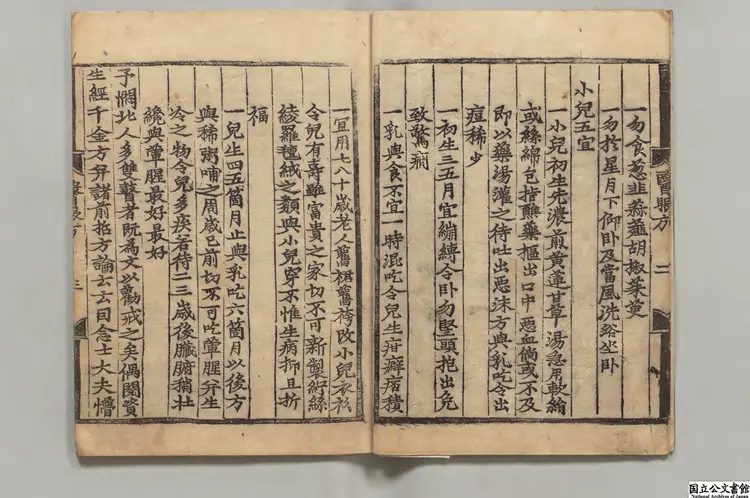 一勿食葱韭蒜薤胡椒茱萸
一勿於星月下仰卧及當風洗浴坐卧
小兒五宜
一小兒初生先濃煎黃蓮甘草湯急用軟絹
或絲綿包指蘸藥摳出口中惡血倘或不及
即以藥湯灌之待吐出惡沫方與乳吃令出
痘稀少
一初生三五月宜繃縛令卧勿竪頭抱出免
致驚癎
一乳與食不宜一時混吃令兒生疳癖痞積
醫眼方 二
一宜用七八十歲老人舊裙舊袴改小兒衣衫
令兒有壽雖富貴之家切不可新製紵絲
綾羅氊絨之類與小兒穿不惟生病抑且折
福
一兒生四五箇月止與乳吃六箇月以後方
與稀粥哺之周歲已前切不可吃葷腥并生
冷之物令兒多疾若待二三歲後臟腑稍壯
纔與葷腥最好最好
予憫北人多雙瞽者既為文以勸戒之矣偶閱資
生經千金方并諸前拾方論云云因念士大夫懵
醫眼方 三
国立公文書館
National Archives of Japan